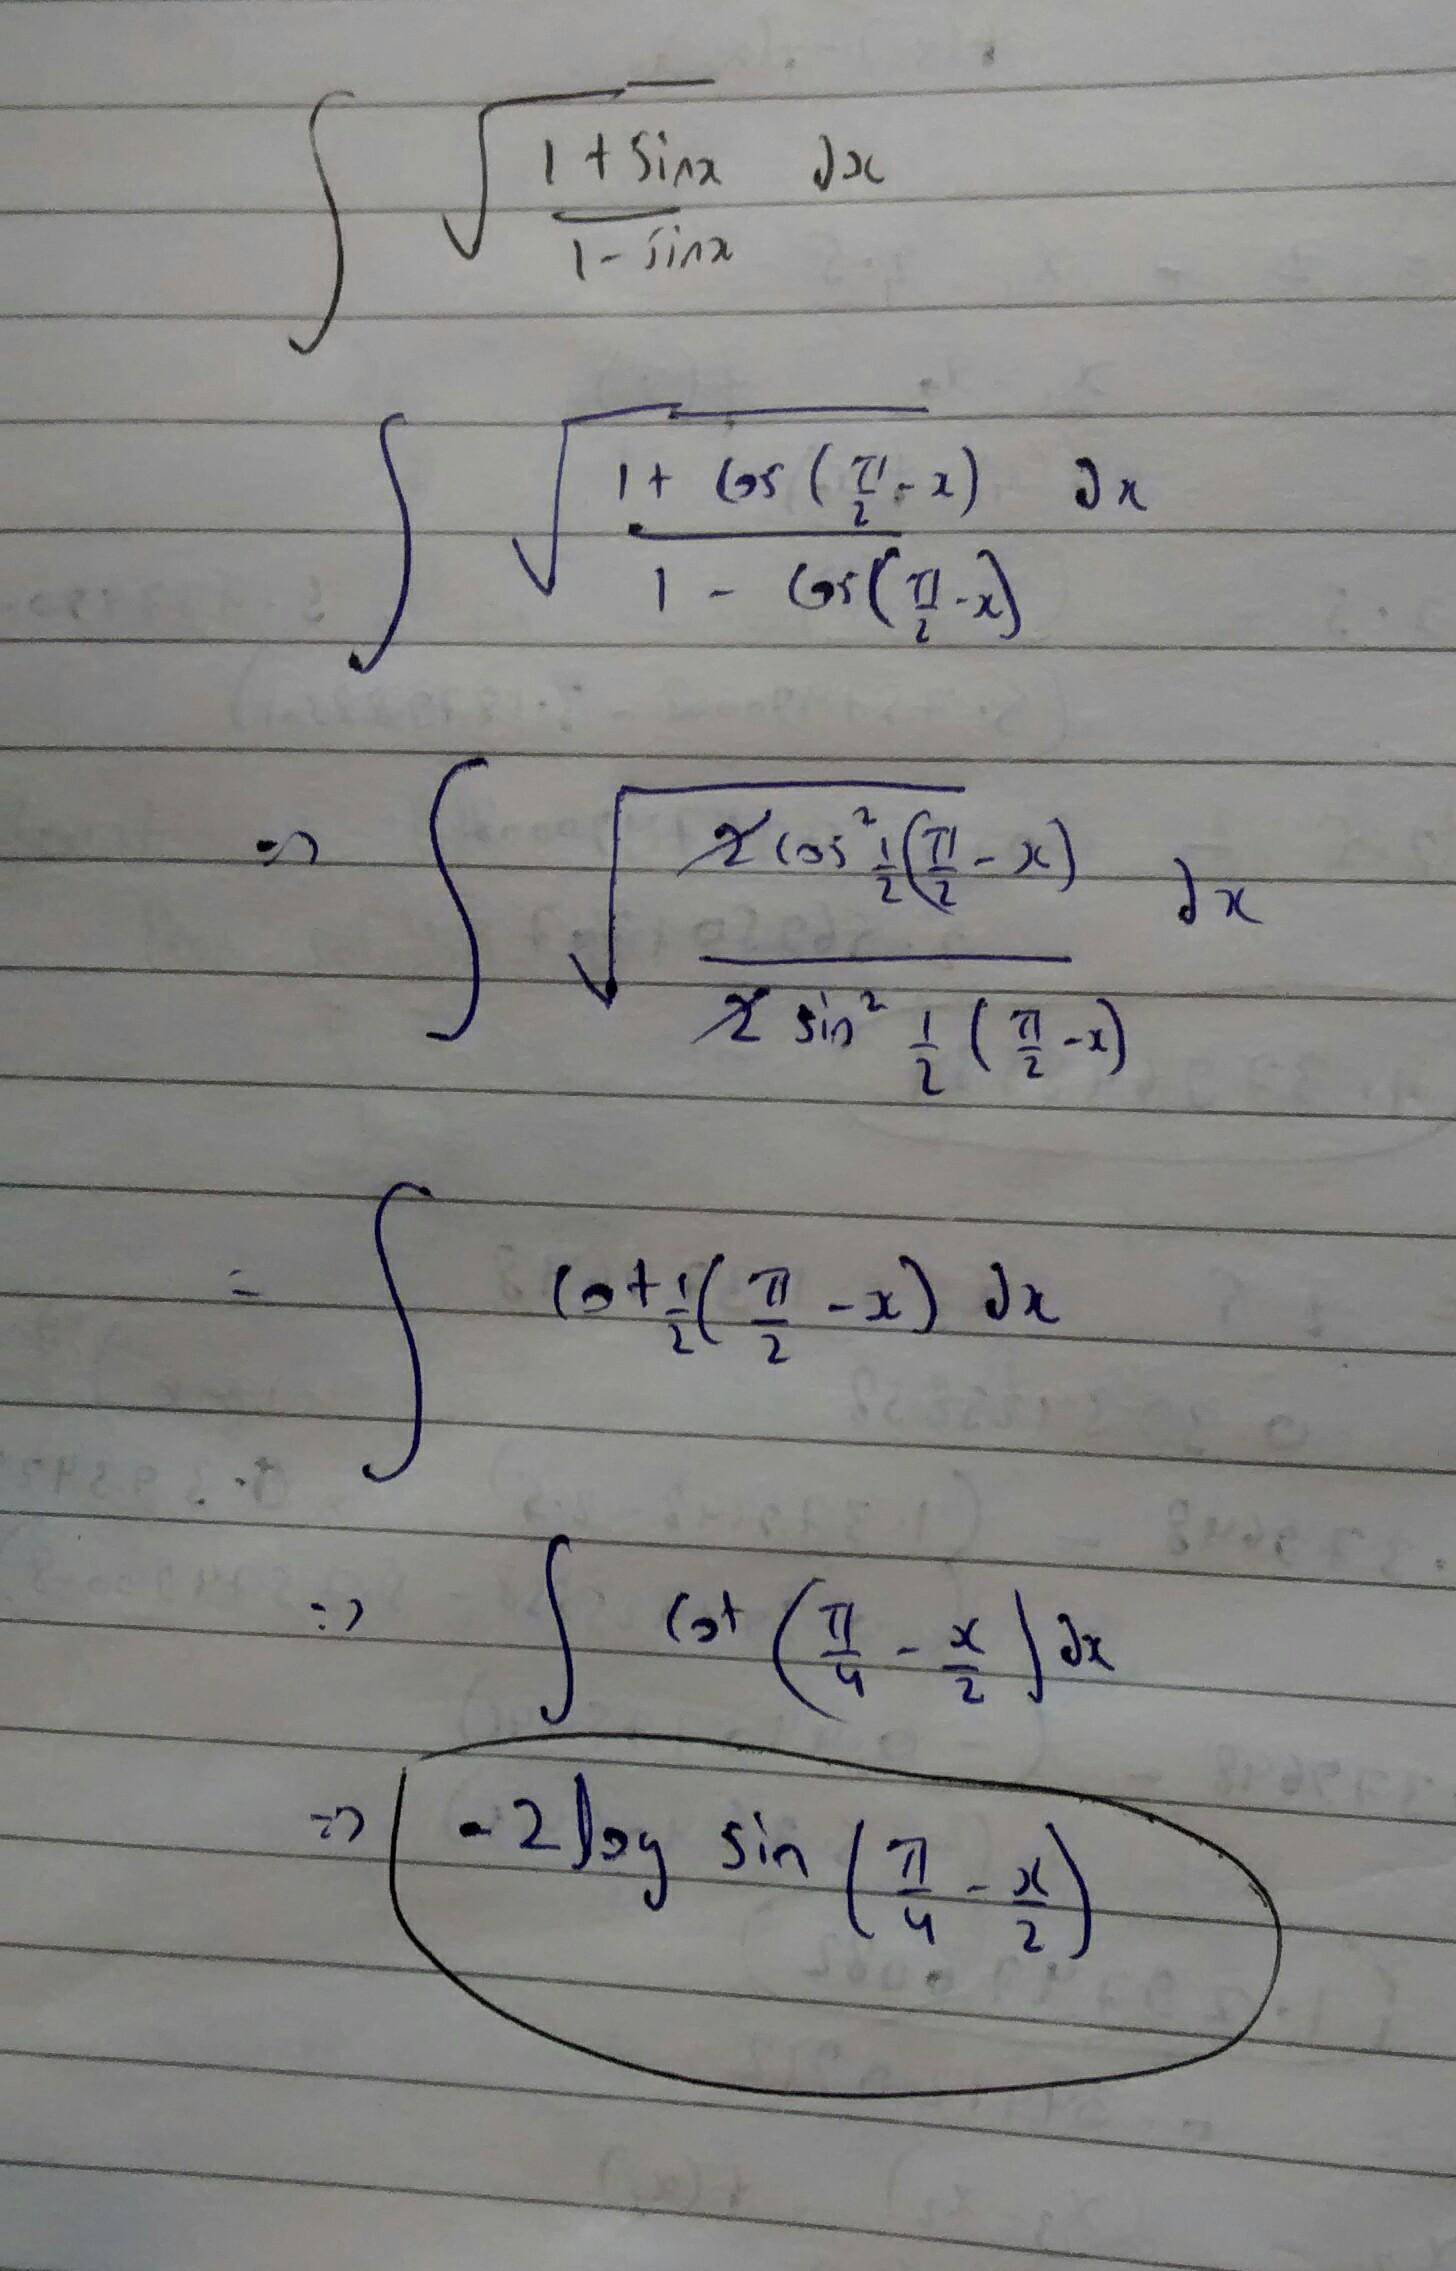 ∫ √((1 + sinx)/(1 - sinx)) dx
∫ √((1 + cos(π/2 - x))/(1 - cos(π/2 - x))) dx
=> ∫ √((2 cos² 1/2 (π/2 - x))/(2 sin² 1/2 (π/2 - x))) dx
= ∫ cot 1/2 (π/2 - x) dx
=> ∫ cot (π/4 - x/2) dx
=> -2 log sin (π/4 - x/2)